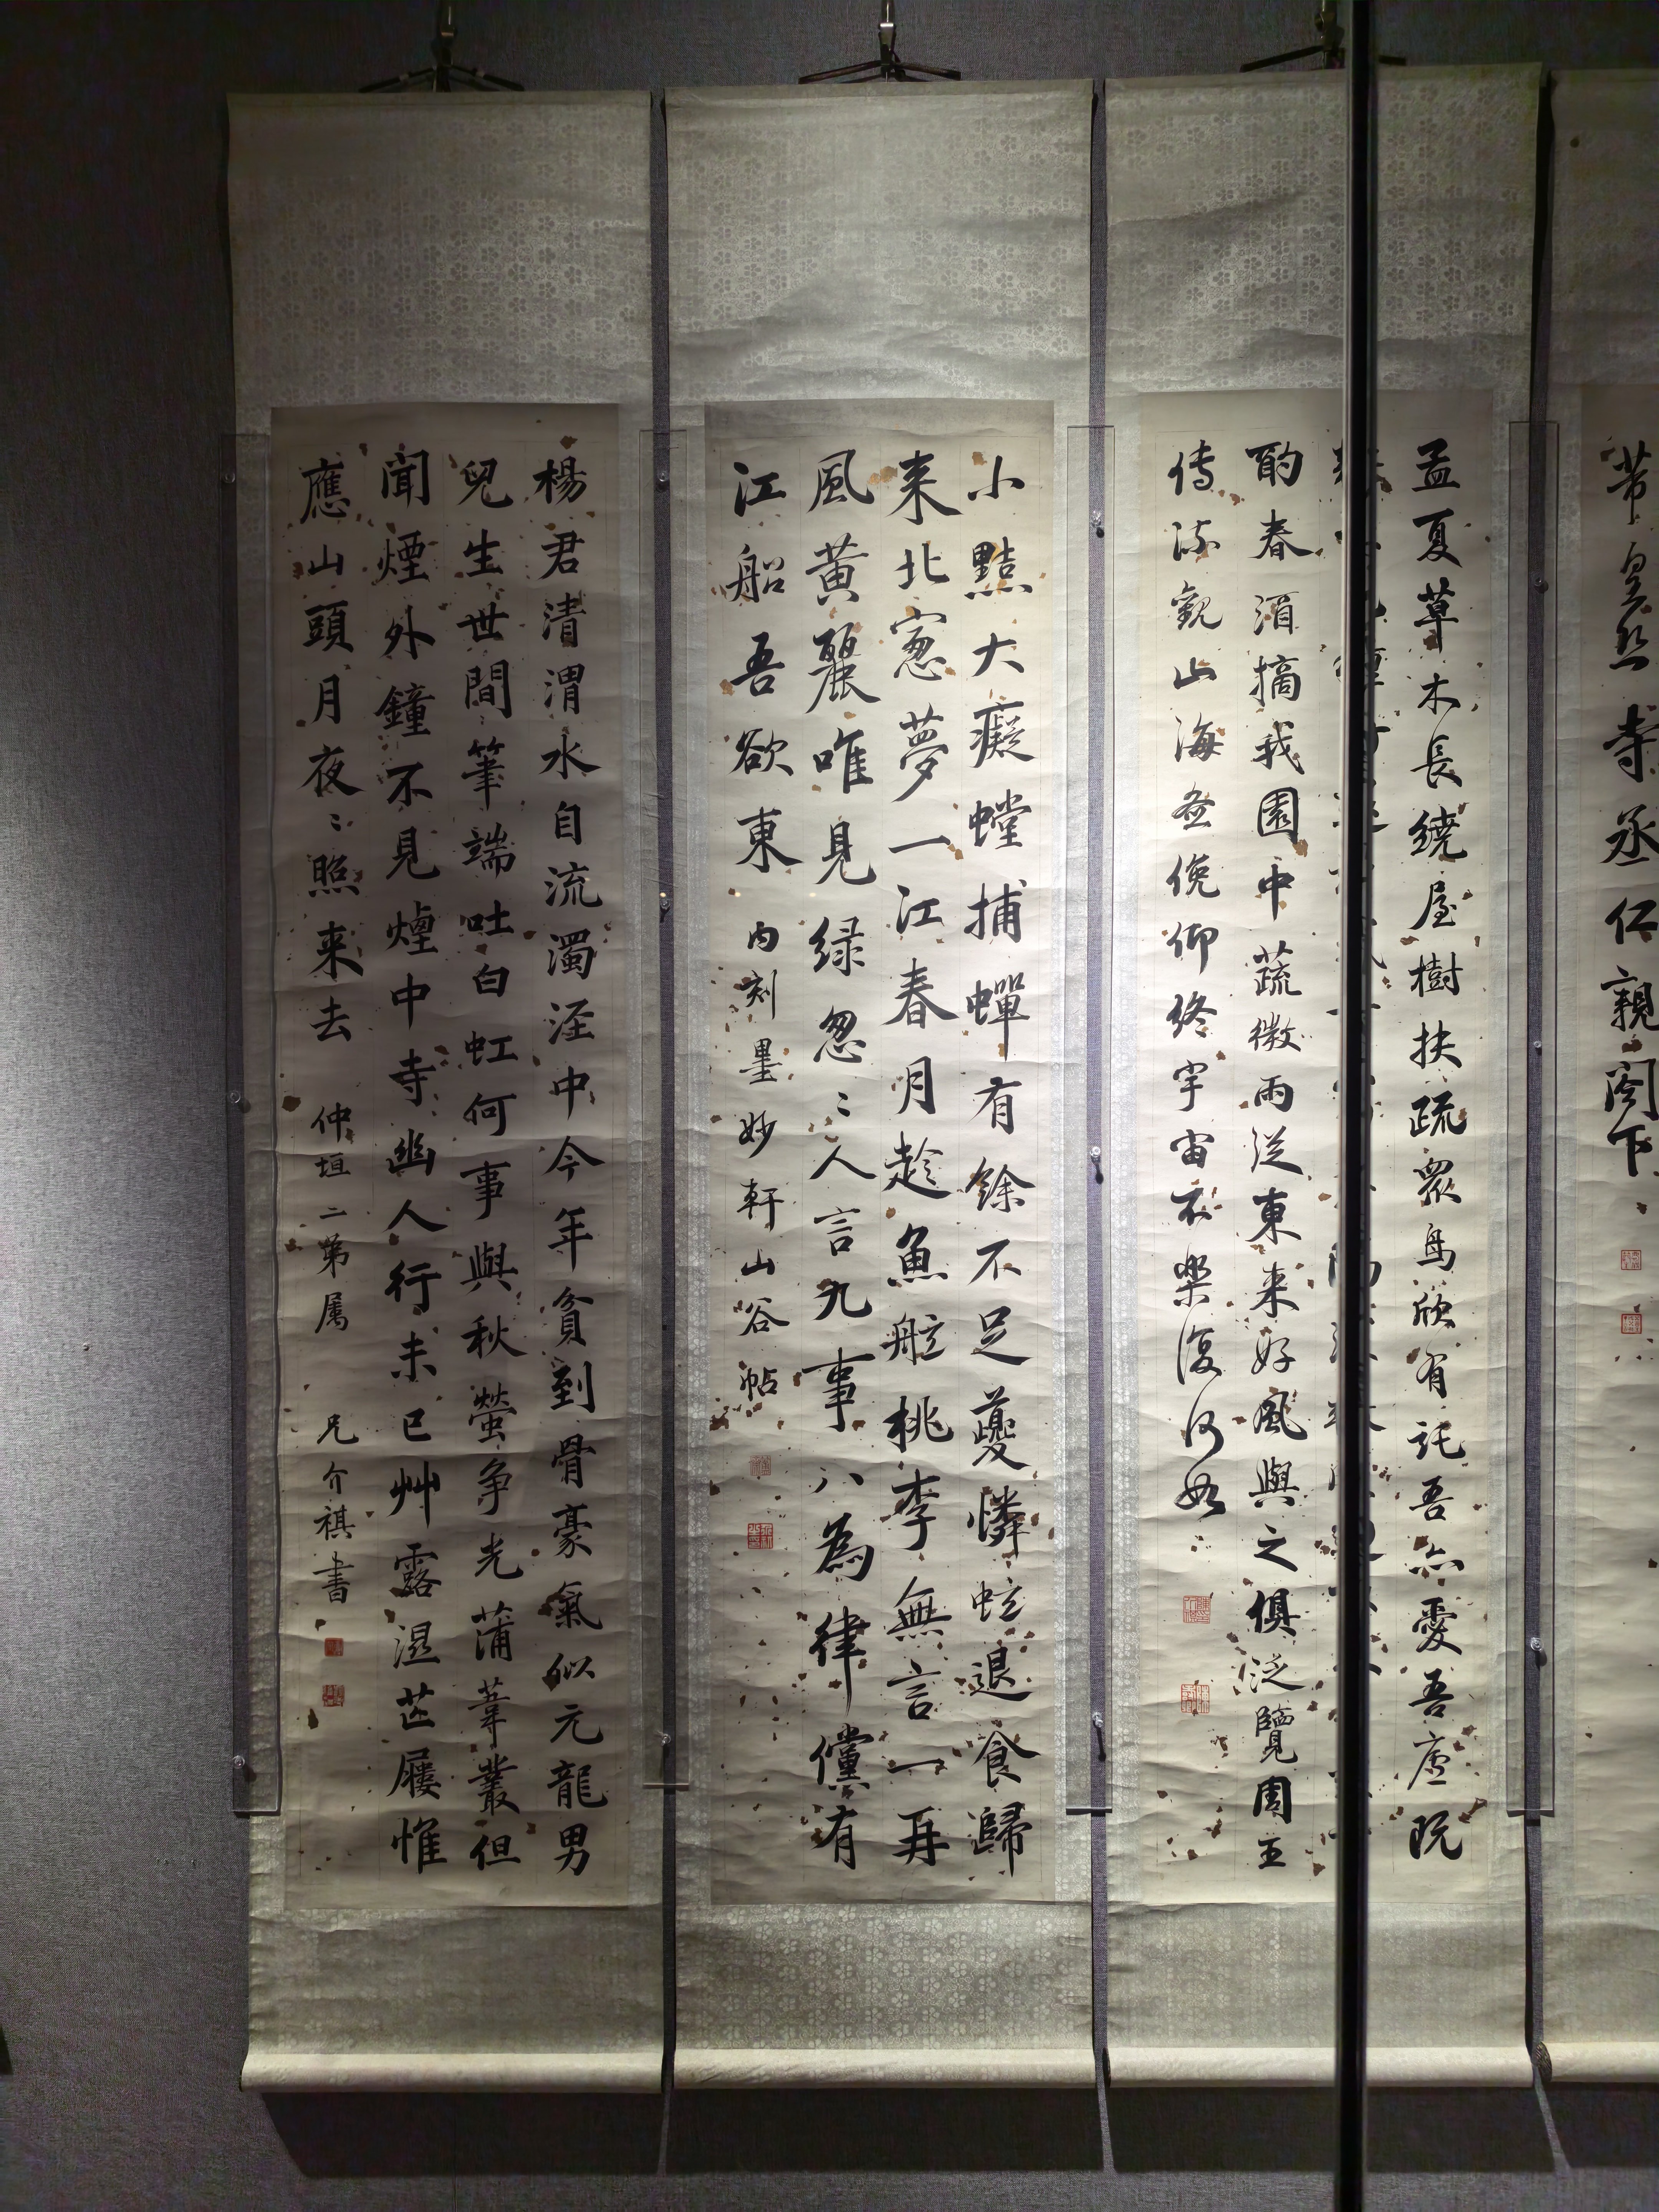 芾皇恐寺丞仁親閣下
孟夏草木長繞屋樹扶疏眾鳥欣有託吾亦愛吾廬既
酌春酒摘我園中蔬微雨從東来好風與之俱泛覽周王
傳流觀山海圖俛仰終宇宙不樂復何如
小黠大癡螳捕蟬有餘不足夔憐蚿退食歸
来北窻夢一江春月趁魚舡桃李無言一再
風黃麗唯見綠怱〻人言九事八為律儻有
江船吾欲東 內刻墨妙軒山谷帖
楊君清渭水自流濁涇中今年貧到骨豪氣似元龍男
兒生世間筆端吐白虹何事與秋螢争光蒲葦叢但
聞煙外鐘不見煙中寺幽人行未已艸露濕芒屨惟
應山頭月夜〻照来去 仲垣二弟属 兄介祺書